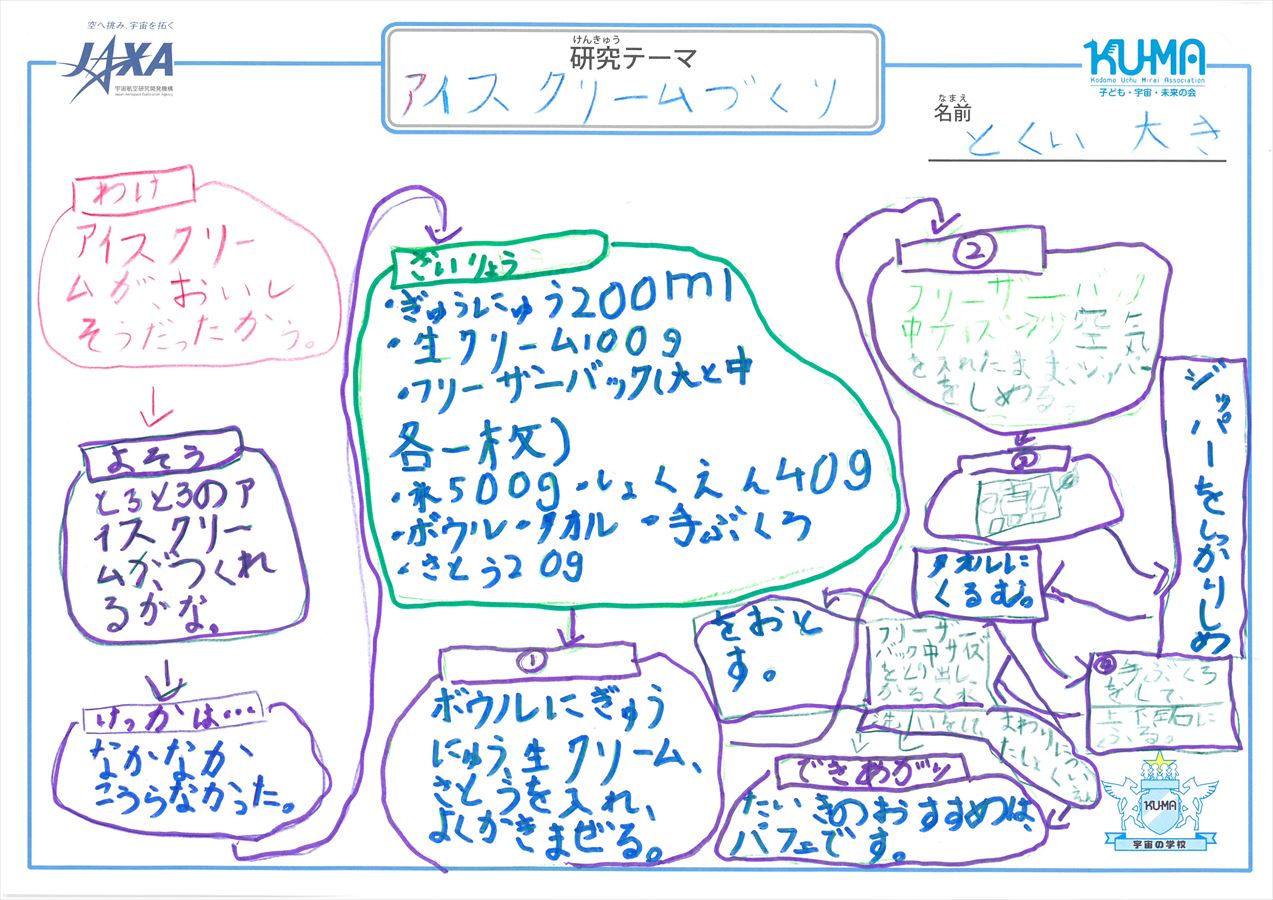 空へ挑み、宇宙を拓く
JAXA
宇宙航空研究開発機構
Japan Aerospace Exploration Agency
けんきゅう
研究テーマ
アイスクリームづくり
KU-MA
Kodomo Uchu Mirai Association
子ども・宇宙・未来の会
なまえ
名前
とくい 大き
わけ
アイスクリー
ムが、おいし
そうだったから。
よそう
とろとろのア
イスクリー
ムが、つくれ
るかな。
けっかは…
なかなか、
こうらなかった。
ざいりょう
・ぎゅうにゅう200ml
・生クリーム100g
・フリーザーバック(大と中
各一枚)
・氷500g・しょくえん40g
・ボウル・タオル ・手ぶくろ
・さとう20g
①
ボウルにぎゅう
にゅう、生クリーム、
さとうを入れ、
よくかきまぜる。
②
フリーザーバック
中サイズ 空気
を入れたまま、ジッパー
をしめる。
ジッパーをしっかりしめ
タオルに
くるむ。
手ぶくろ
をして、
上下左右に
ふる。
フリーザー
バック中サイズ
をとり出し、
かるく水
洗いをして、まわりについ
たしょくえん
をおと
す。
できあがり
たいきのおすすめは、
パフェです。
KU-MA
宇宙の学校